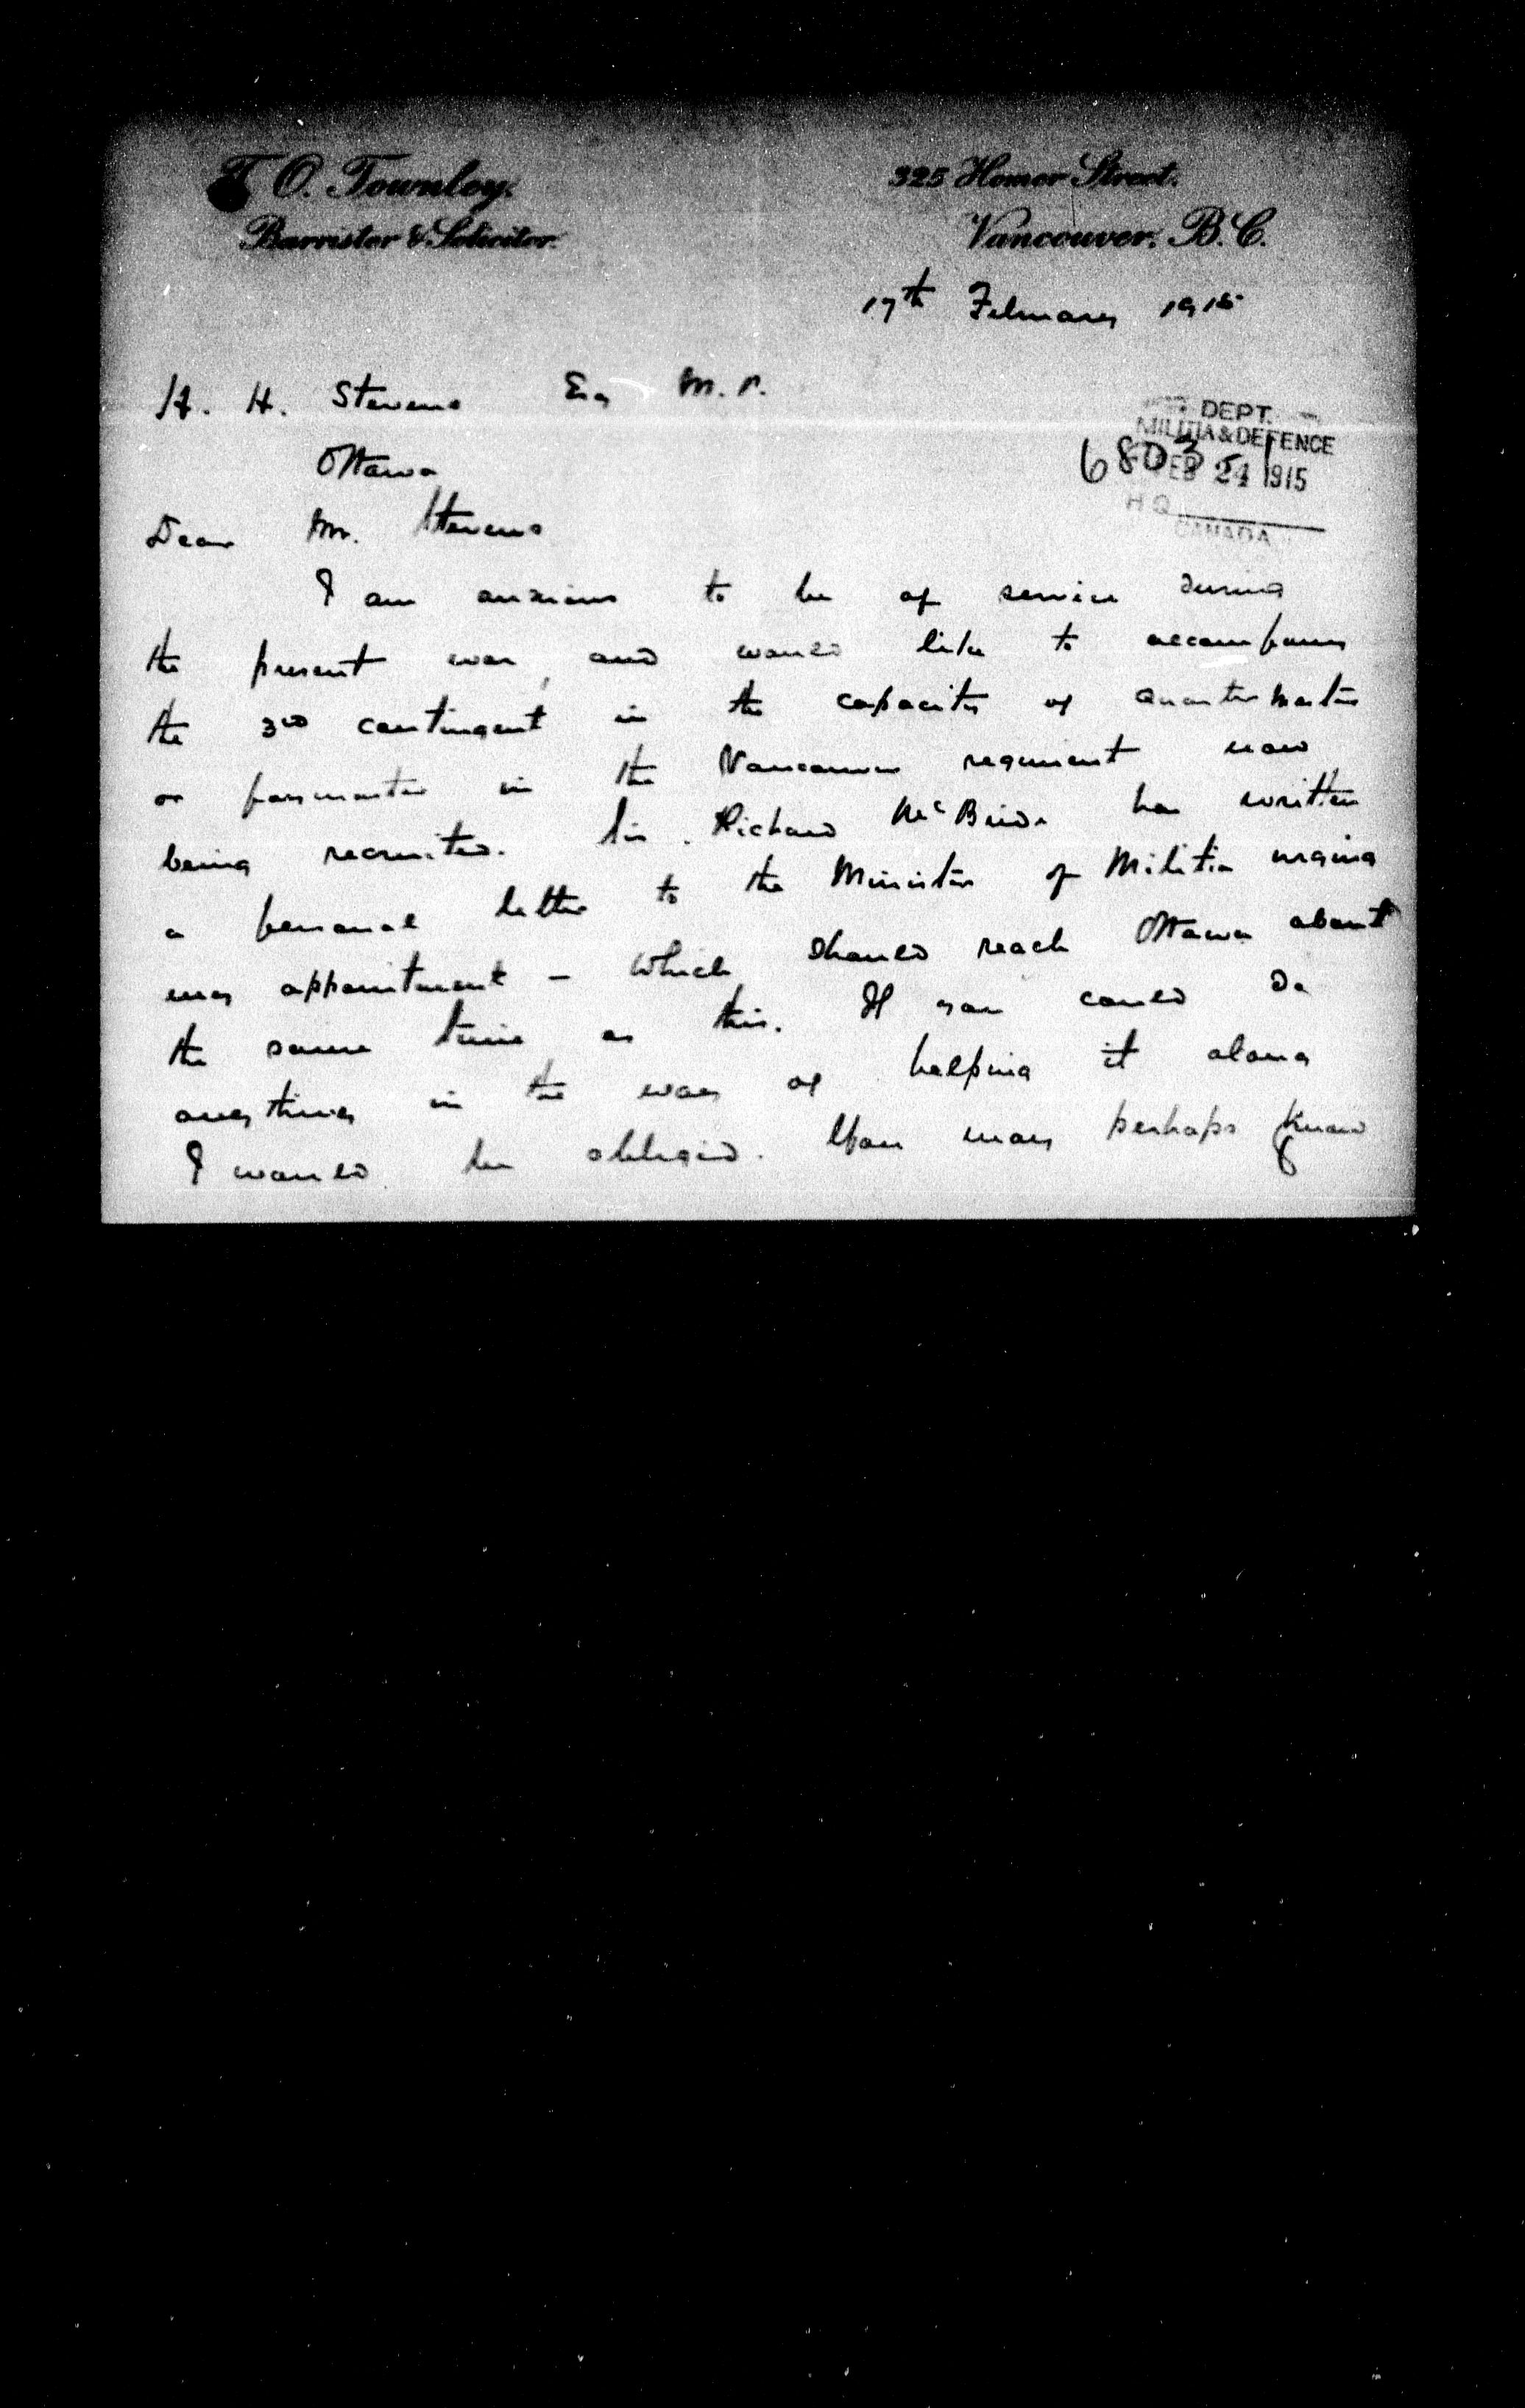 T O. Townley.
Barrister & Solicitor.
325 Homer Street.
Vancouver, B.C.
17th February 1915
H. H. Stevens Esq M.P.
Ottawa
DEPT.
MILITIA & DEFENCE
FEB 24 1915
H Q
CANADA
Dear Mr. Stevens
I am anxious to be of service during
the present war, and would like to accompany
the 3rd contingent in the capacity of Quarter Master
or paymaster in the Vancouver regiment now
being recruited. Sir Richard McBride has written
a personal letter to the Minister of Militia urging
my appointment – which should reach Ottawa about
the same time as this. If you could do
anything in the way of helping it along
I would be obliged. You may perhaps know